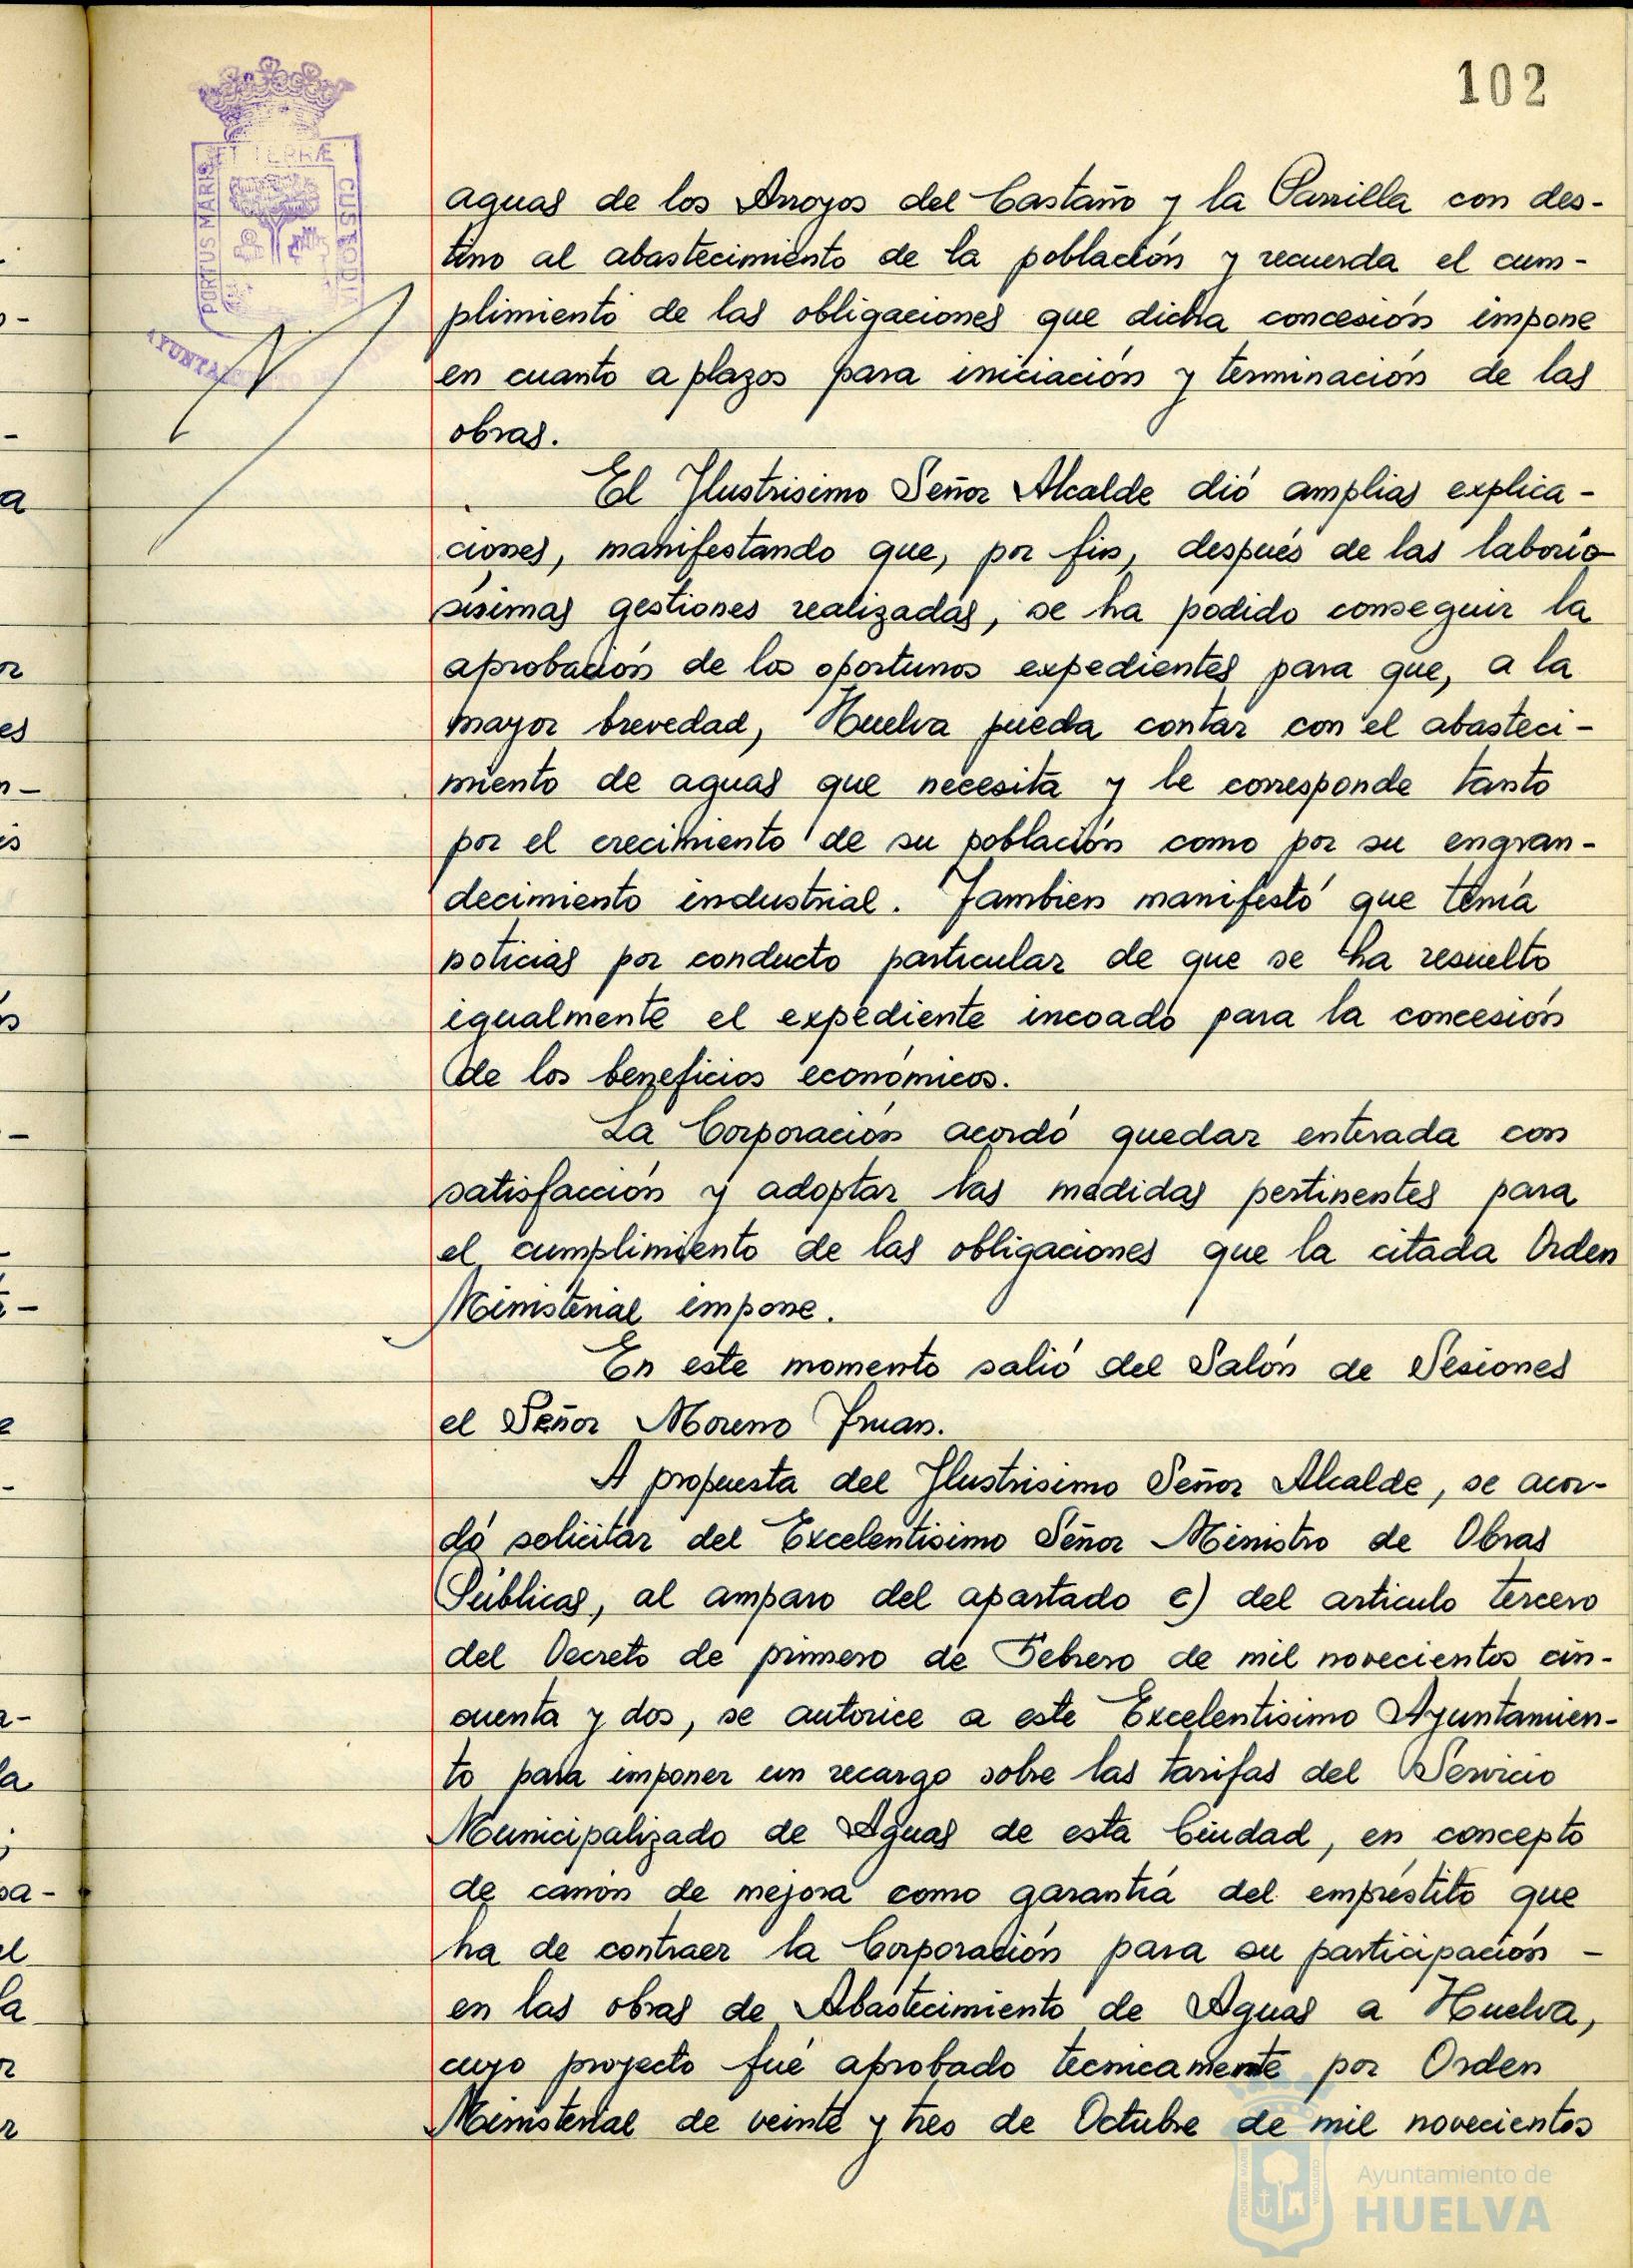 102
PORTUS MARIS ET TERRÆ CUSTODIA
AYUNTAMIENTO DE
aguas de los Arroyos del Castaño y la Parrilla con des-
tino al abastecimiento de la población y recuerda el cum-
plimiento de las obligaciones que dicha concesión impone
en cuanto a plazos para iniciación y terminación de las
obras.
El Ilustrisimo Señor Alcalde dió amplias explica-
ciones, manifestando que, por fin, después de las laborio-
sísimas gestiones realizadas, se ha podido conseguir la
aprobación de los oportunos expedientes para que, a la
mayor brevedad, Huelva pueda contar con el abasteci-
miento de aguas que necesita y le corresponde tanto
por el crecimiento de su población como por su engran-
decimiento industrial. Tambien manifestó que tenía
noticias por conducto particular de que se ha resuelto
igualmente el expediente incoado para la concesión
de los beneficios económicos.
La Corporación acordó quedar enterada con
satisfacción y adoptar las medidas pertinentes para
el cumplimiento de las obligaciones que la citada Orden
Ministerial impone.
En este momento salió del Salón de Sesiones
el Señor Moreno
A propuesta del Ilustrisimo Señor Alcalde, se acor-
dó solicitar del Excelentisimo Señor Ministro de Obras
Públicas, al amparo del apartado c) del articulo tercero
del Decreto de primero de Febrero de mil novecientos cin-
cuenta y dos, se autorice a este Excelentisimo Ayuntamien-
to para imponer un recargo sobre las tarifas del Servicio
Municipalizado de Aguas de esta Ciudad, en concepto
de canon de mejora como garantía del empréstito que
ha de contraer la Corporación para su participación -
en las obras de Abastecimiento de Aguas a Huelva,
cuyo proyecto fué aprobado tecnicamente por Orden
Ministerial de veinte y tres de Octubre de mil novecientos
Ayuntamiento de
HUELVA